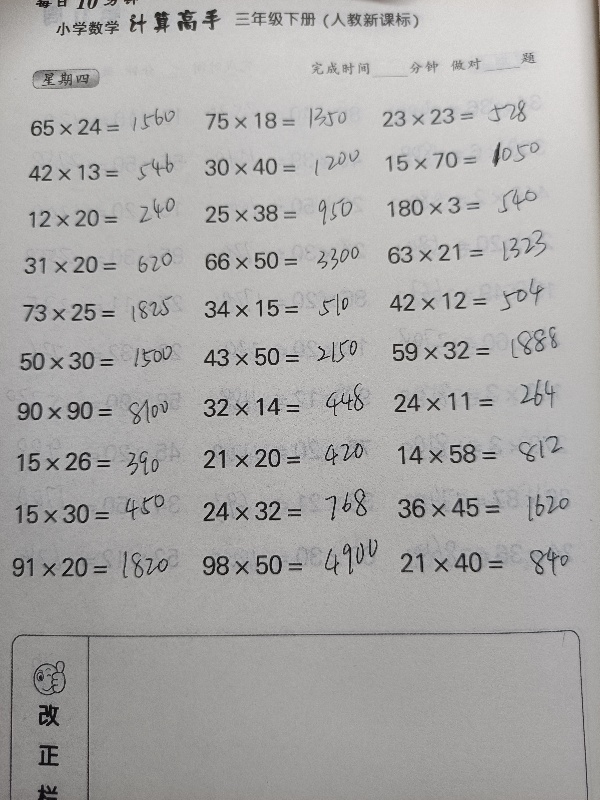 每日10分钟
小学数学 计算高手 三年级下册 (人教新课标)
完成时间____分钟 做对____题
星期四
65×24= 1560 75×18= 1350 23×23= 528
42×13= 546 30×40= 1200 15×70= 1050
12×20= 240 25×38= 950 180×3= 540
31×20= 620 66×50= 3300 63×21= 1323
73×25= 1825 34×15= 510 42×12= 504
50×30= 1500 43×50= 2150 59×32= 1888
90×90= 8100 32×14= 448 24×11= 264
15×26= 390 21×20= 420 14×58= 812
15×30= 450 24×32= 768 36×45= 1620
91×20= 1820 98×50= 4900 21×40= 840
改
正
栏